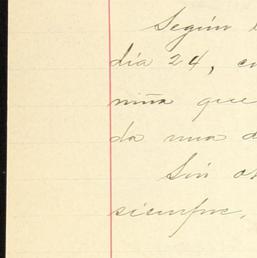 Según
día 24, en
niña que
da una
Sin
siempre,